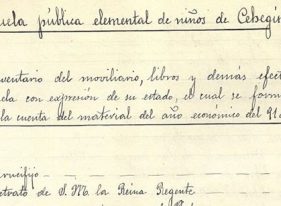 uela pública elemental de niños de Cehegín
ventario del moviliario, libros y demás efect
ela con expresión de su estado, el cual se form
la cuenta del material del año económico del 91 á
rucifijo
etrato de S. M. la Reina Regente